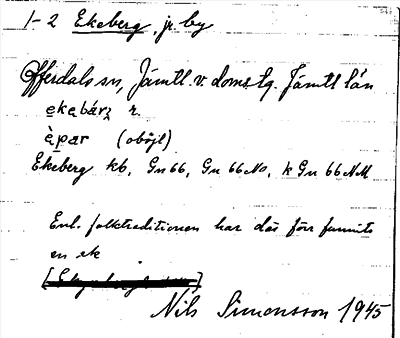 1-2 Ekeberg, jr. by
Offerdals sn, Jämtl. v. doms tg. Jämtl län
ekabárʒ r.
àpar (oböjl)
Ekeberg kb, Gn 66, Gn 66 No, k Gn 66 NM
Enl. folktraditionen har där förr funnits
en ek
Nils Simonsson 1945